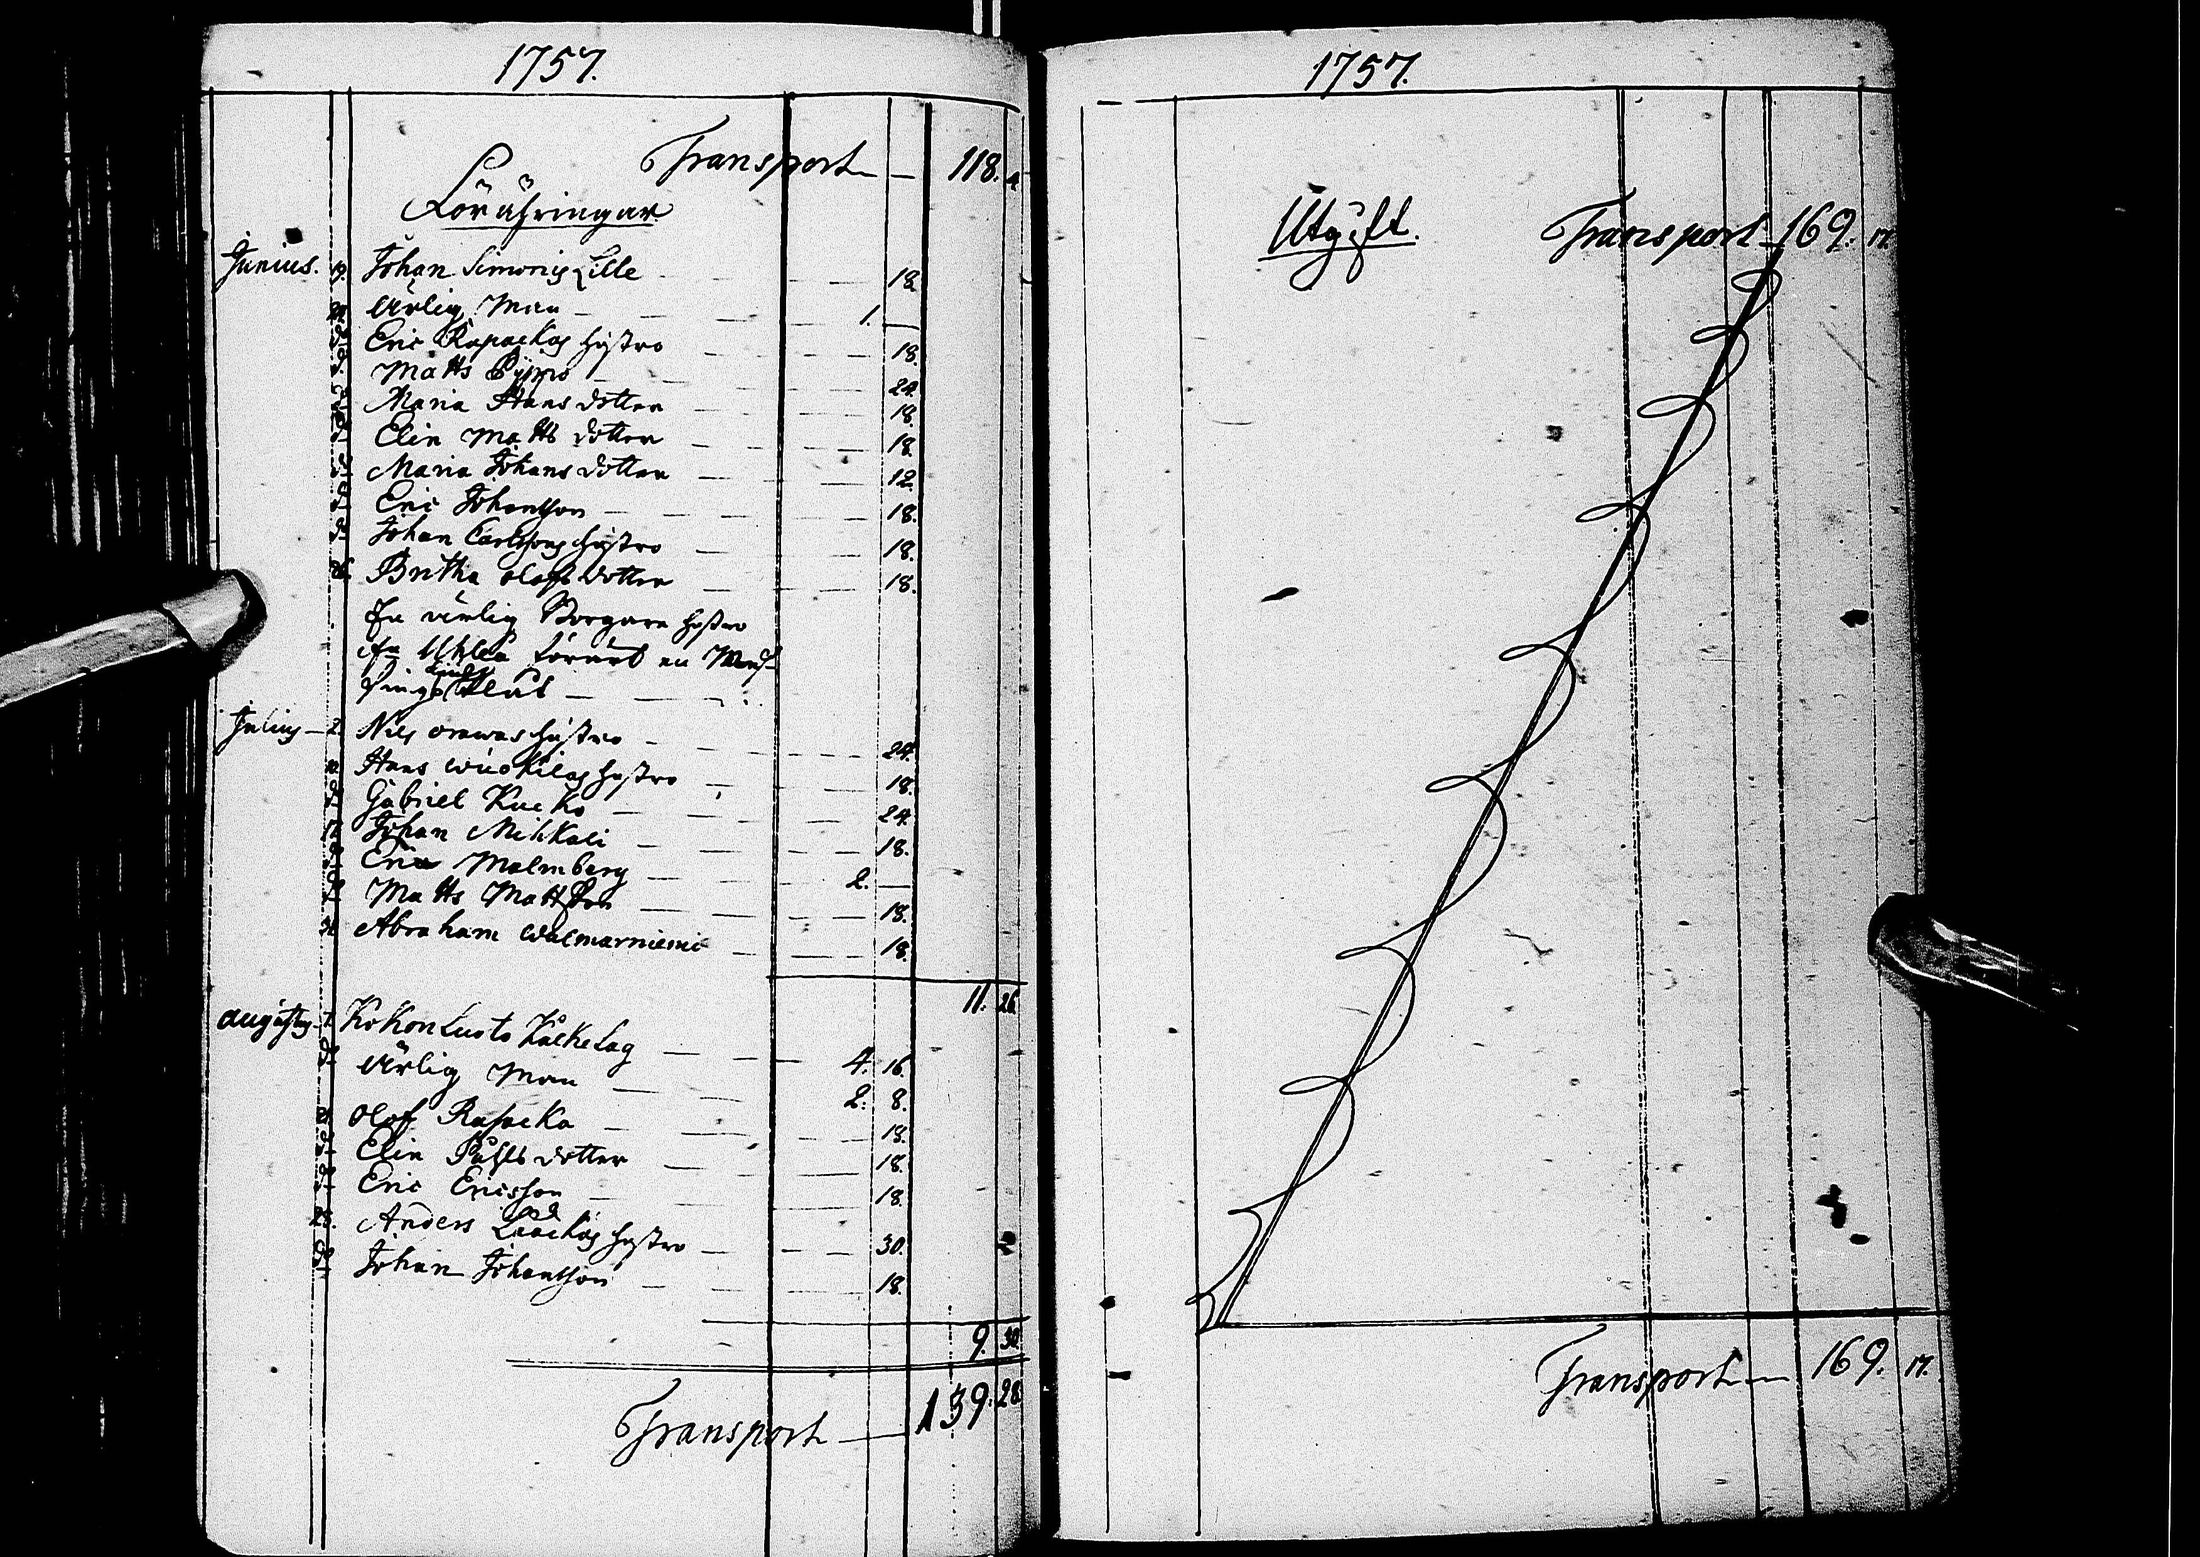 1757.
Transport — 118. 4
Föräringar
Junius. 19. Johan Simonis Lille — 18.
Ärlig Man — 1. —
Eric Rapackas hustro — 18.
Matts Pyppö — 24.
Maria Hans dotter — 18.
Elin Matts dotter — 18.
Maria Johans dotter — 12.
Eric Johansson — 18.
Johan Carlssons hustro — 18.
26. Britha Olofs dotter — 18.
En ärlig Borgare hustro
förärt en
Julius — 2. Nils hustro — 24.
Hans hustro — 18.
Gabriel Kucko — 24.
17. Johan Mihkali — 18.
Malmberg — 2. —
Matts Mattsson — 18.
Abraham Walmarniemi — 18.
11. 26.
Augustus 7. Kokonluoto — 4. 16.
Ärlig Man — 2. 8.
Olof Rapacka — 18.
Elin Påhls dotter — 18.
Eric Ericsson — 18.
28. Anders hustro — 30.
Johan Johansson — 18.
9. 30
Transport — 139. 28
1757.
Utgift. Transport — 169. 17.
Transport — 169. 17.